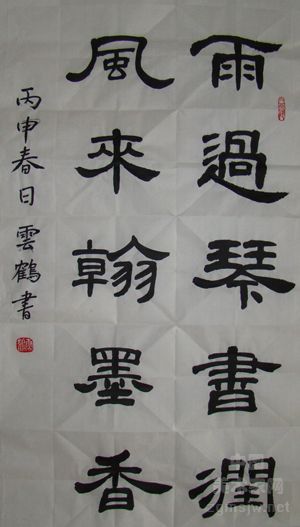 雨過琴書潤
風來翰墨香
丙申春日雲鶴書
zgmsjw.net